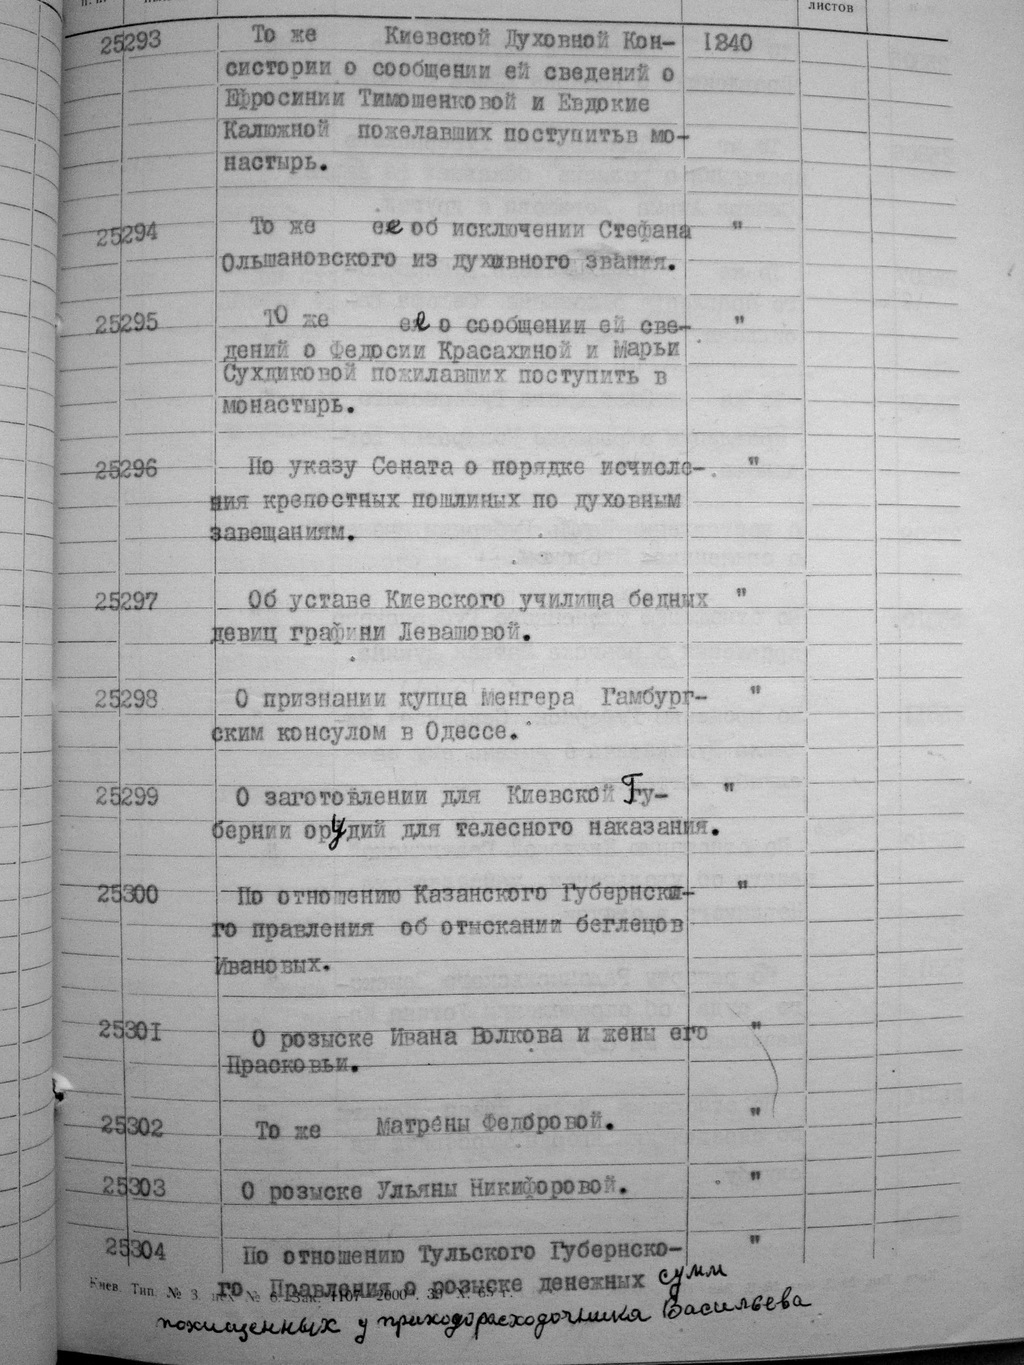 листов
25293 То же Киевской Духовной Кон- 1840
систории о сообщении ей сведений о
Ефросинии Тимошенковой и Евдокие
Калюжной пожелавших поступитьв мо-
настырь.
25294 То же ее об исключении Стефана "
Ольшановского из духивного звания.
25295 ТО же ее о сообщении ей све- "
дений о Федосии Красахиной и Марьи
Сухдиковой пожилавших поступить в
монастырь.
25296 По указу Сената о порядке исчисле- "
ния крепостных пошлиных по духовным
завещаниям.
25297 Об уставе Киевского училища бедных "
девиц графини Левашовой.
25298 О признании купца Менгера Гамбург- "
ским консулом в Одессе.
25299 О заготовлении для Киевской Гу- "
бернии орудий для телесного наказания.
25300 По отношению Казанского Губернски- "
го правления об отыскании беглецов
Ивановых.
25301 О розыске Ивана Волкова и жены его "
Прасковьи.
25302 То же Матрены Федоровой. "
25303 О розыске Ульяны Никифоровой. "
25304 По отношению Тульского Губернско- "
го Правления о розыске денежных сумм
Киев. Тип. № 3.
похищенных у приходорасходочника Васильева